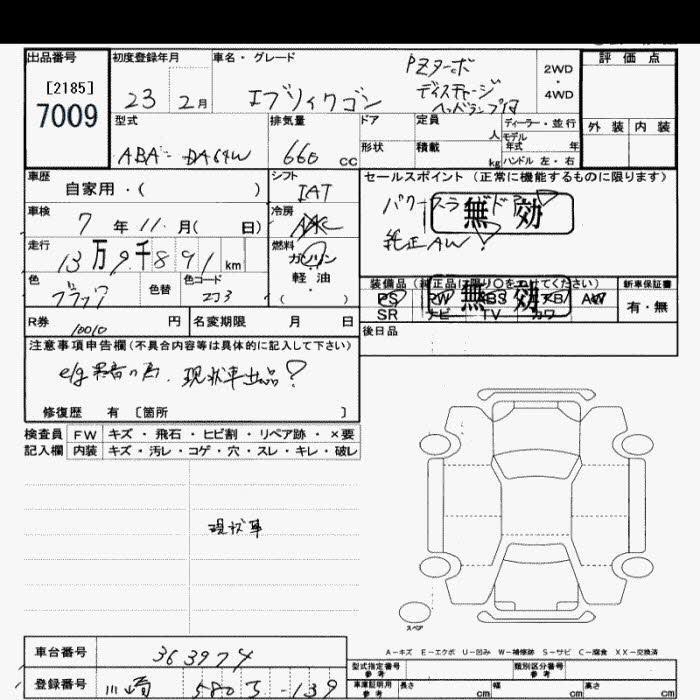 出品番号
[2185]
7009
初度登録年月
23 2月
車名・グレード
エブリィワゴン
PZターボ
ディスチャージ
ヘッドランプ付
2WD
・
4WD
評価点
外装 内装
型式
ABA-DA64W
排気量
660 CC
ドア
形状
定員
人
積載
kg
ディーラー・並行
モデル
年式 年
ハンドル 左・右
車歴
自家用・( )
シフト
IAT
セールスポイント(正常に機能するものに限ります)
パワースライドドア
無効
純正AW
車検
7年11月( 日)
冷房
AAC
走行
13万9千891km
燃料
ガソリン
・
軽油
( )
色
ブラック
色替
色コード
ZJ3
装備品(純正品に限り○をつけてください)
PS PW ABS エアB AW
無効
SR ナビ TV カワ
新車保証書
有・無
R券
10010 円
名変期限 月 日
後日品
注意事項申告欄(不具合内容等は具体的に記入して下さい)
e/g異音の為、現状車出品
修復歴 有 〔箇所 〕
検査員 FW キズ・飛石・ヒビ割・リペア跡・×要
記入欄 内装 キズ・汚レ・コゲ・穴・スレ・キレ・破レ
現状車
スペア
A-キズ E-エクボ U-凹み W-補修跡 S-サビ C-腐食 XX-交換済
車台番号
363974
登録番号
川崎 580 -139
型式指定番号
参考
類別区分番号
参考
車庫証明用
参考
長さ cm
幅 cm
高さ cm